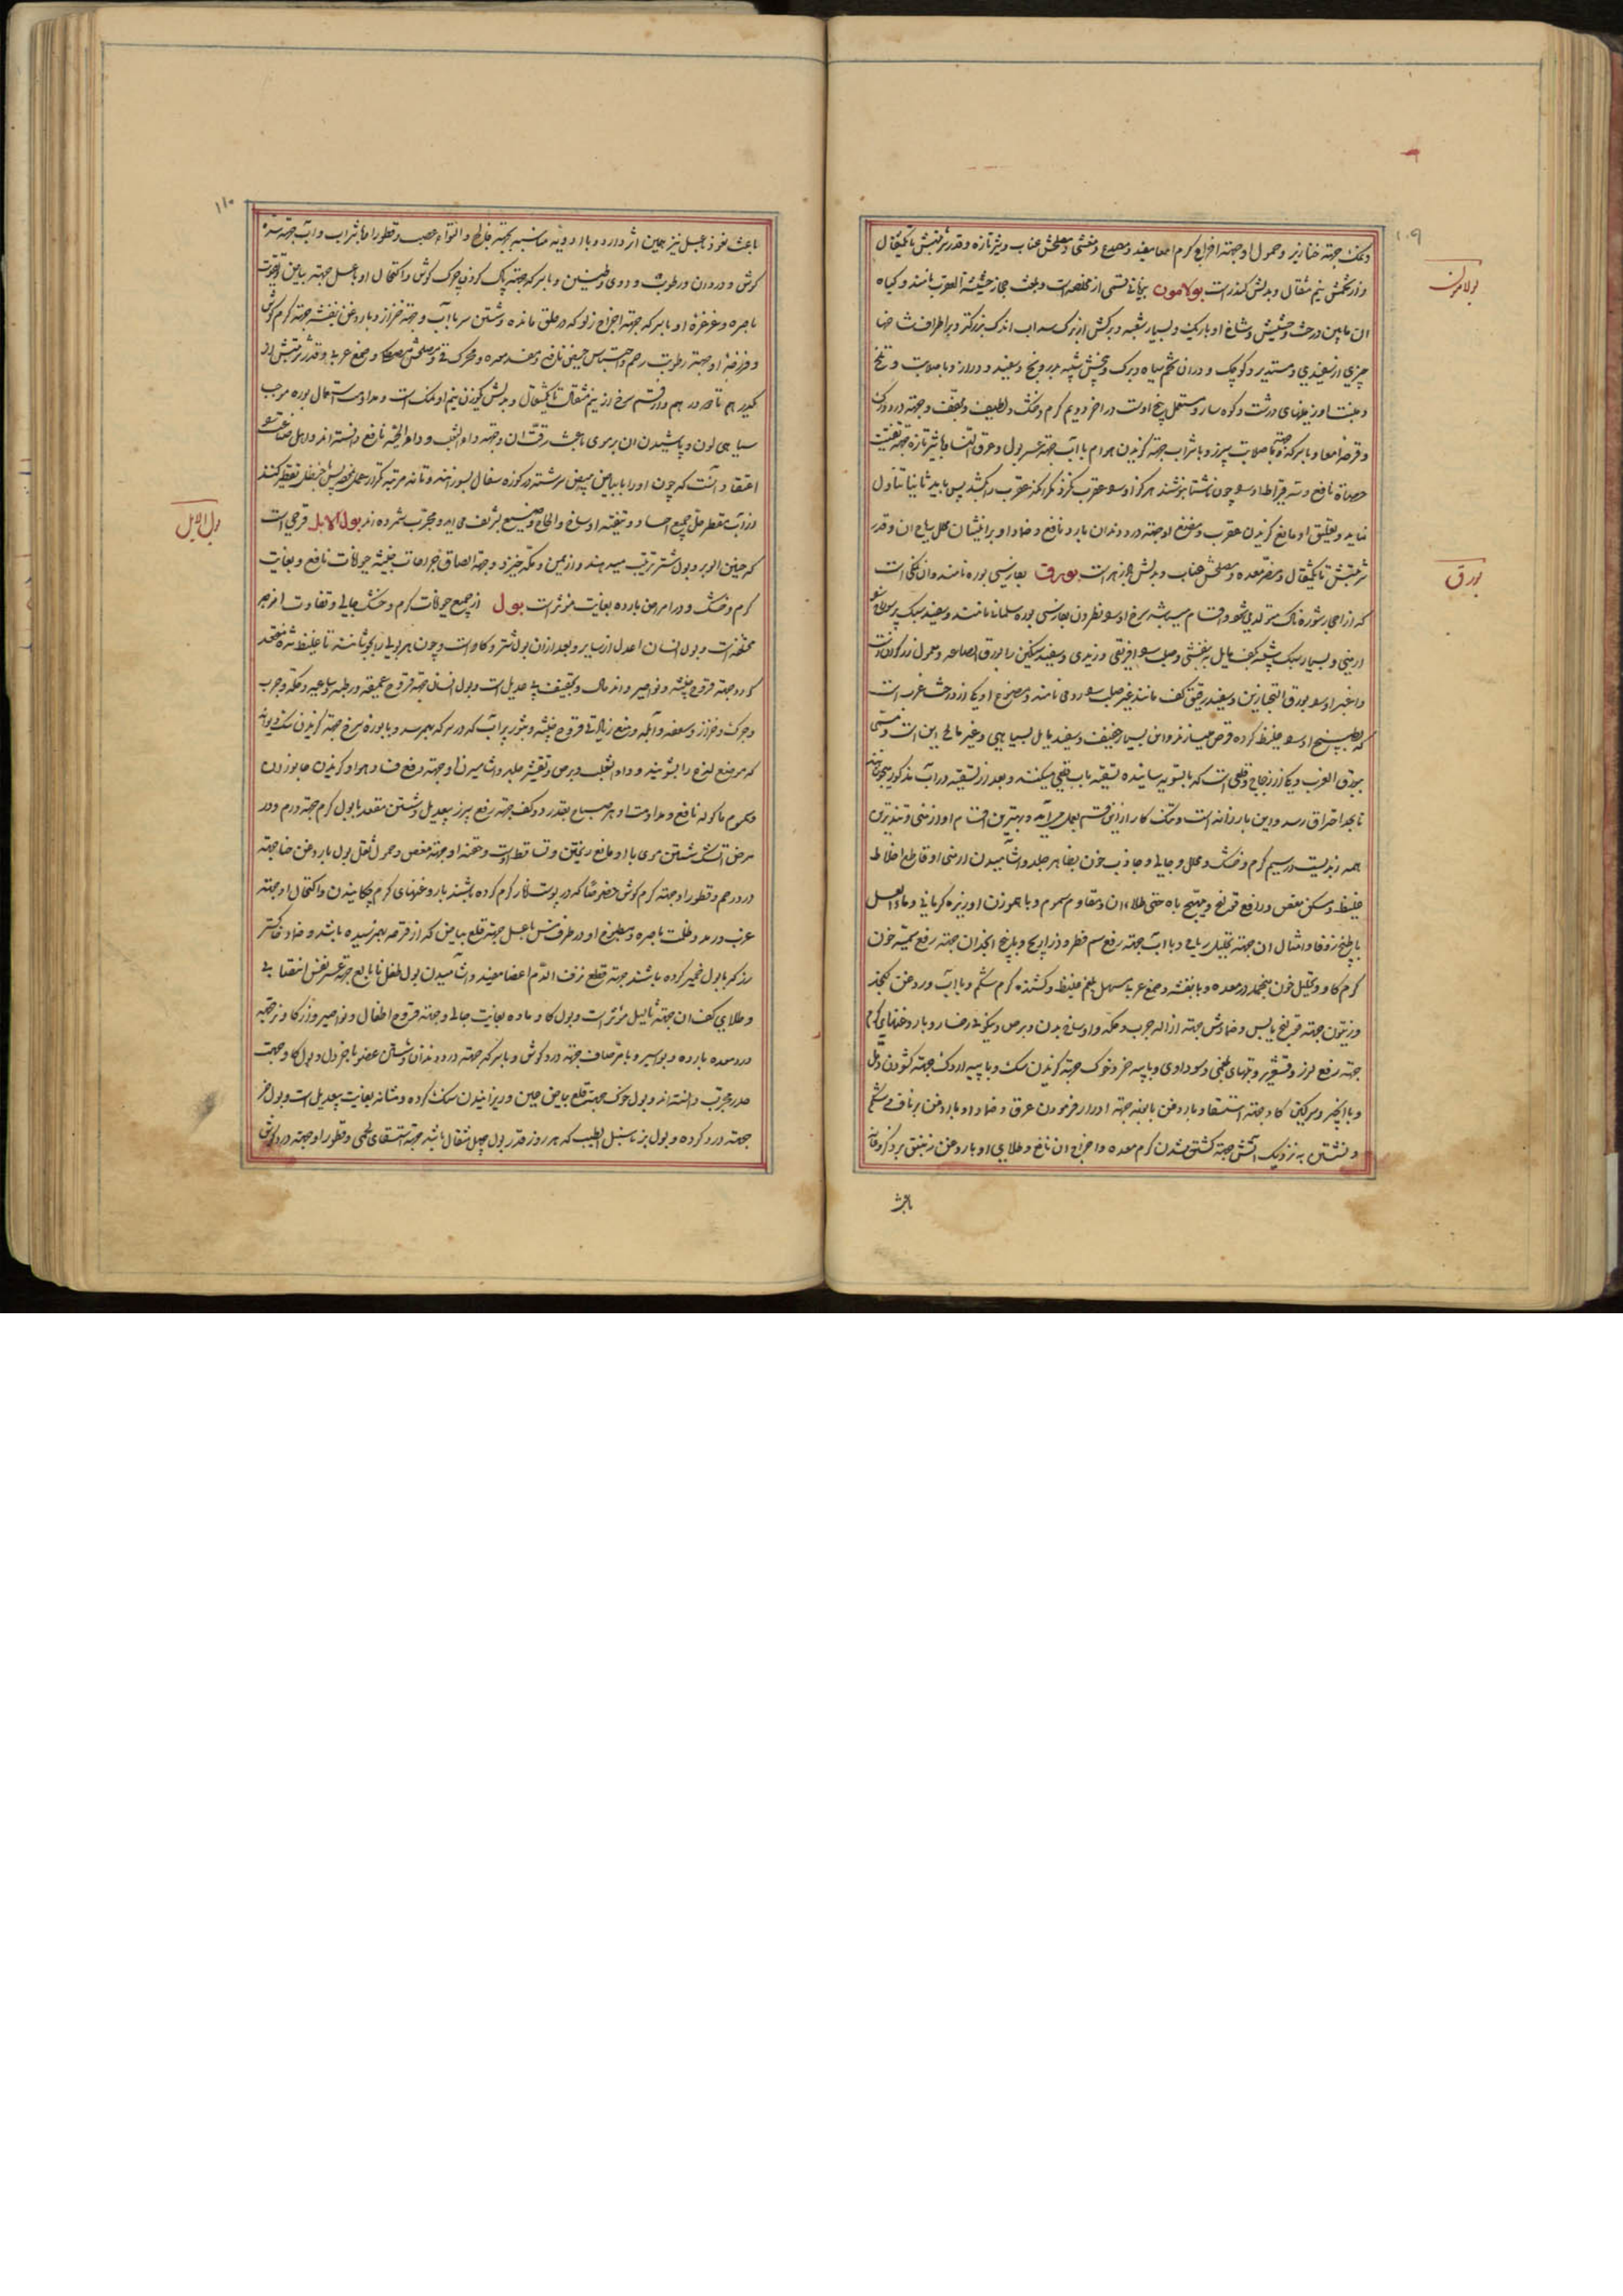 ۱۰۹
و نمک جهته خنازیر و حمول او جهته اخراج کرم امعا مفید و مصدع و مغشی و مصلحش عناب و شیر تازه و قدر شربتش تا یکمثقال
و از تخمش نیم مثقال و بدلش کندر است بولامون یونانی قسمی از مخلصه است و بلغت حجاز حشیشة العقرب نامند و گیاه
بولامون
ان مابین درخت و حشیش و شاخ او باریک و بسیار شعبه و برکش از برک سداب اندک بزرکتر و بر اطراف شاخها
چیزی از سفیدی و مستدیر و کوچک و دران تخم سیاه و برک و بیخش شبیه بدرونج و سفید و دراز و با صلابت و تلخ
و منبت او زمینهای درشت و کوهسار و مستعمل بیخ اوست در اخر دویم کرم و خشک و لطیف و مجفف و جهته درد ورک
و قرحه امعا و با سرکه جهته صلابت سپرز و با شراب جهته کزیدن هوام با آب جهته عسر بول و عرق النسا و با شیر تازه جهته تفتیت
حصاة نافع و سه قیراط او چون ناشتا بنوشند هرکز او را عقرب نکزد مکر انکه عقرب را بکشد پس باید ثانیا تناول
نماید و تعلیق او مانع کزیدن عقرب و مضمضه او جهته درد دندان بارد نافع و ضماد او برانثیان محلل ریاح ان و قدر
شربتش تا یکمثقال و مضر معده و مصلحش عناب و بدلش پازهر است بورق بفارسی بوره نامند و ان نمکی است
بورق
که از احجار شوره ناک متولد میشود و اقسام میباشد سرخ او را نطرون بفارسی بوره سلمانا نامند و سفید سبک پرسوراخ را
ارمنی و بسیار سبک شبیه بکف مایل به بنفشی و صلب را افریقی و زبدی و سفید سنکین را بورق الصاغه و معمول زرکران است
و اغبر او را بورق الخبازین و سفید رقیق کف مانند غیر صلب را رومی نامند و مصنوع او یکی از درخت غرب است
که طبیخ او را غلیظ کرده قرص میسازند و این بسیار خفیف و سفید مایل بسیاهی و غیر مالح این است و مسمی
ببورق الغرب و یکی از زجاج و قلعی است
تا بحد احتراق رسد و این بار دانه است و نمک کار از این قسم بعمل میآید و بهترین اقسام او ارمنی و تندترین
همه زبدیست در سیم کرم و خشک و محلل و جالی و جاذب خون بظاهر جلد و اشامیدن ارمنی او قاطع اخلاط
غلیظ و مسکن مغص و رافع قولنج و مهیج باه حتی طلاء ان و مقاوم سموم و با هموزن او زیره کرمانی و ماء العسل
یا طبیخ زوفا و امثال ان جهته تحلیل ریاح و با آب جهته رفع سم فطر و ذراریح و با بیخ انجدان جهته رفع سمیة خون
کرم کاو و تحلیل خون منجمد در معده و با بنفشه و صمغ عربی مسهل بلغم غلیظ و کشنده کرم شکم و با آب و روغن کنجد
و زیتون جهته قولنج یابس و ضمادش جهته ازاله جرب و حکه و اوساخ بدن و برص و نیکوئی رخسار و با روغنهای کرم
جهته رفع لرز و قشعریره و تبهای بلغمی و سوداوی و با پیه خر و خوک جهته کزیدن سک و با پیه اردک جهته کشودن دمل
و با انجیر و سرکین کاو جهته استسقا و با روغن بابونه جهته ادرار فرمودن عرق و ضماد او با روغن بر ناف و شکم
و نشستن به نزدیک آتش جهته کشته شدن کرم معده و اخراج ان نافع و طلای او با روغن زنبق بر ذکر و عانه
باعث
۱۱۰
باعث نعوظ و عسل نیز همین اثر دارد و با ادویه مناسبه جهته فالج و التواء عصب و قطور او با شراب و آب جهته سده
کوش و درد ان و رطوبت و دوی و طنین و با سرکه جهته پاک کردن چرک کوش و اکتحال او با عسل جهته بیاض و تقویت
باصره و غرغره او با سرکه جهته اخراج زلو که در حلق مانده و شستن سر با آب و جهته حزاز و با روغن بنفشه جهته کرم کوش
و فرزجه او جهته رطوبت رحم و احتباس حیض نافع و مفسد معده و محرک قی و مصلحش مصطکی و صمغ عربی و قدر شربتش از
یکدرهم تا دو درهم و از قسم سرخ از نیم مثقال تا یکمثقال و بدلش کوزن نیم او نمک است و مداومت استعمال بوره موجب
سیاهی لون و پاشیدن ان بر موی باعث رقت ان و جهته داء الثعلب و داء الحیه نافع دانسته اند و اهل صناعت را
اعتقاد آنست که چون او را با بیاض بیض سرشته در کوزه سفال بسوزانند و تا نه مرتبه تکرار عمل نموده پس با حنظل تقطیر کنند
از آب مقطر حل جمیع اجساد و تنقیه اوساخ و الحاح وضیع بشریف می آید و مجرب شمرده اند بول الابل قرحی است
بول الابل
که حنین الوبر و بول شتر ترتیب میدهند و از یمن و مکه خیزد و جهته الصاق جراحات خبیثه حیوانات نافع و بغایت
کرم و خشک و در امراض بارده بغایت مؤثر است بول از جمیع حیوانات کرم و خشک و جالی و تفاوت امزجه
مختلف است و بول انسان اعدل از سایر و بعد ازان بول شتر و کاو است و چون هر بولی را بجوشانند تا غلیظ شده منعقد
کردد جهته قروح خبیثه و نواصیر و اندمال و تجفیف بی عدیل است و بول انسان جهته قروح عمیقه و رطبه و ساعیه و حکه و جرب
و چرک و حزاز و سعفه و آکله و منع زیادتی قروح خبیثه و بثور پر آب که در سر بهم رسد و با بوره سرخ جهته کزیدن سک دیوانه
که موضع لدغ را بشویند و داء الثعلب و برص و تقشیر جلد و اشامیدن او جهته دفع فساد هوا و کزیدن جانوران
و سموم ماکوله نافع و مداومت او هر صباح بقدر دو کف جهته رفع سپرز بیعدیل و شستن مقعد با بول کرم جهته درد و ورم
مرض انکشتان شستن موی با او مانع ریختن و تساقط است و حقنه او جهته مغص و حمول ثفل بول با روغن حنا جهته
درد رحم و قطور او جهته کرم کوش خصوصا که در پوست انار کرم کرده باشند با روغنهای کرم چکانیدن و اکتحال او جهته
غرب و رمد و ظلمت باصره و مطبوخ او در ظرف مس با عسل جهته قلع بیاض که از قرحه بهم رسیده باشد و ضماد خاکستر
رز که با بول خمیر کرده باشند جهته قطع نزف الدم اعضا مفید و اشامیدن بول طفل نابالغ جهته عسر نفس انتصابی
و طلای کف ان جهته ثالیل مؤثر است و بول کاو ماده بغایت جالی و جهته قروح اطفال و نواصیر و از کاو نر جهته
درد معده بارده و بواسیر و با مر صاف جهته درد کوش و با سرکه جهته درد دندان و شستن عضو با خردل و بول کاو جهت
خدر مجرب دانسته اند و بول خوک جهته قلع بیاض عین و ریزانیدن سنک کرده و مثانه بغایت بیعدیل است و بول خر
جهته درد کرده و بول بز با سنبل الطیب که هر روز قدر بول چهل مثقال باشد جهته استسقای لحمی و قطور او جهته درد کوش